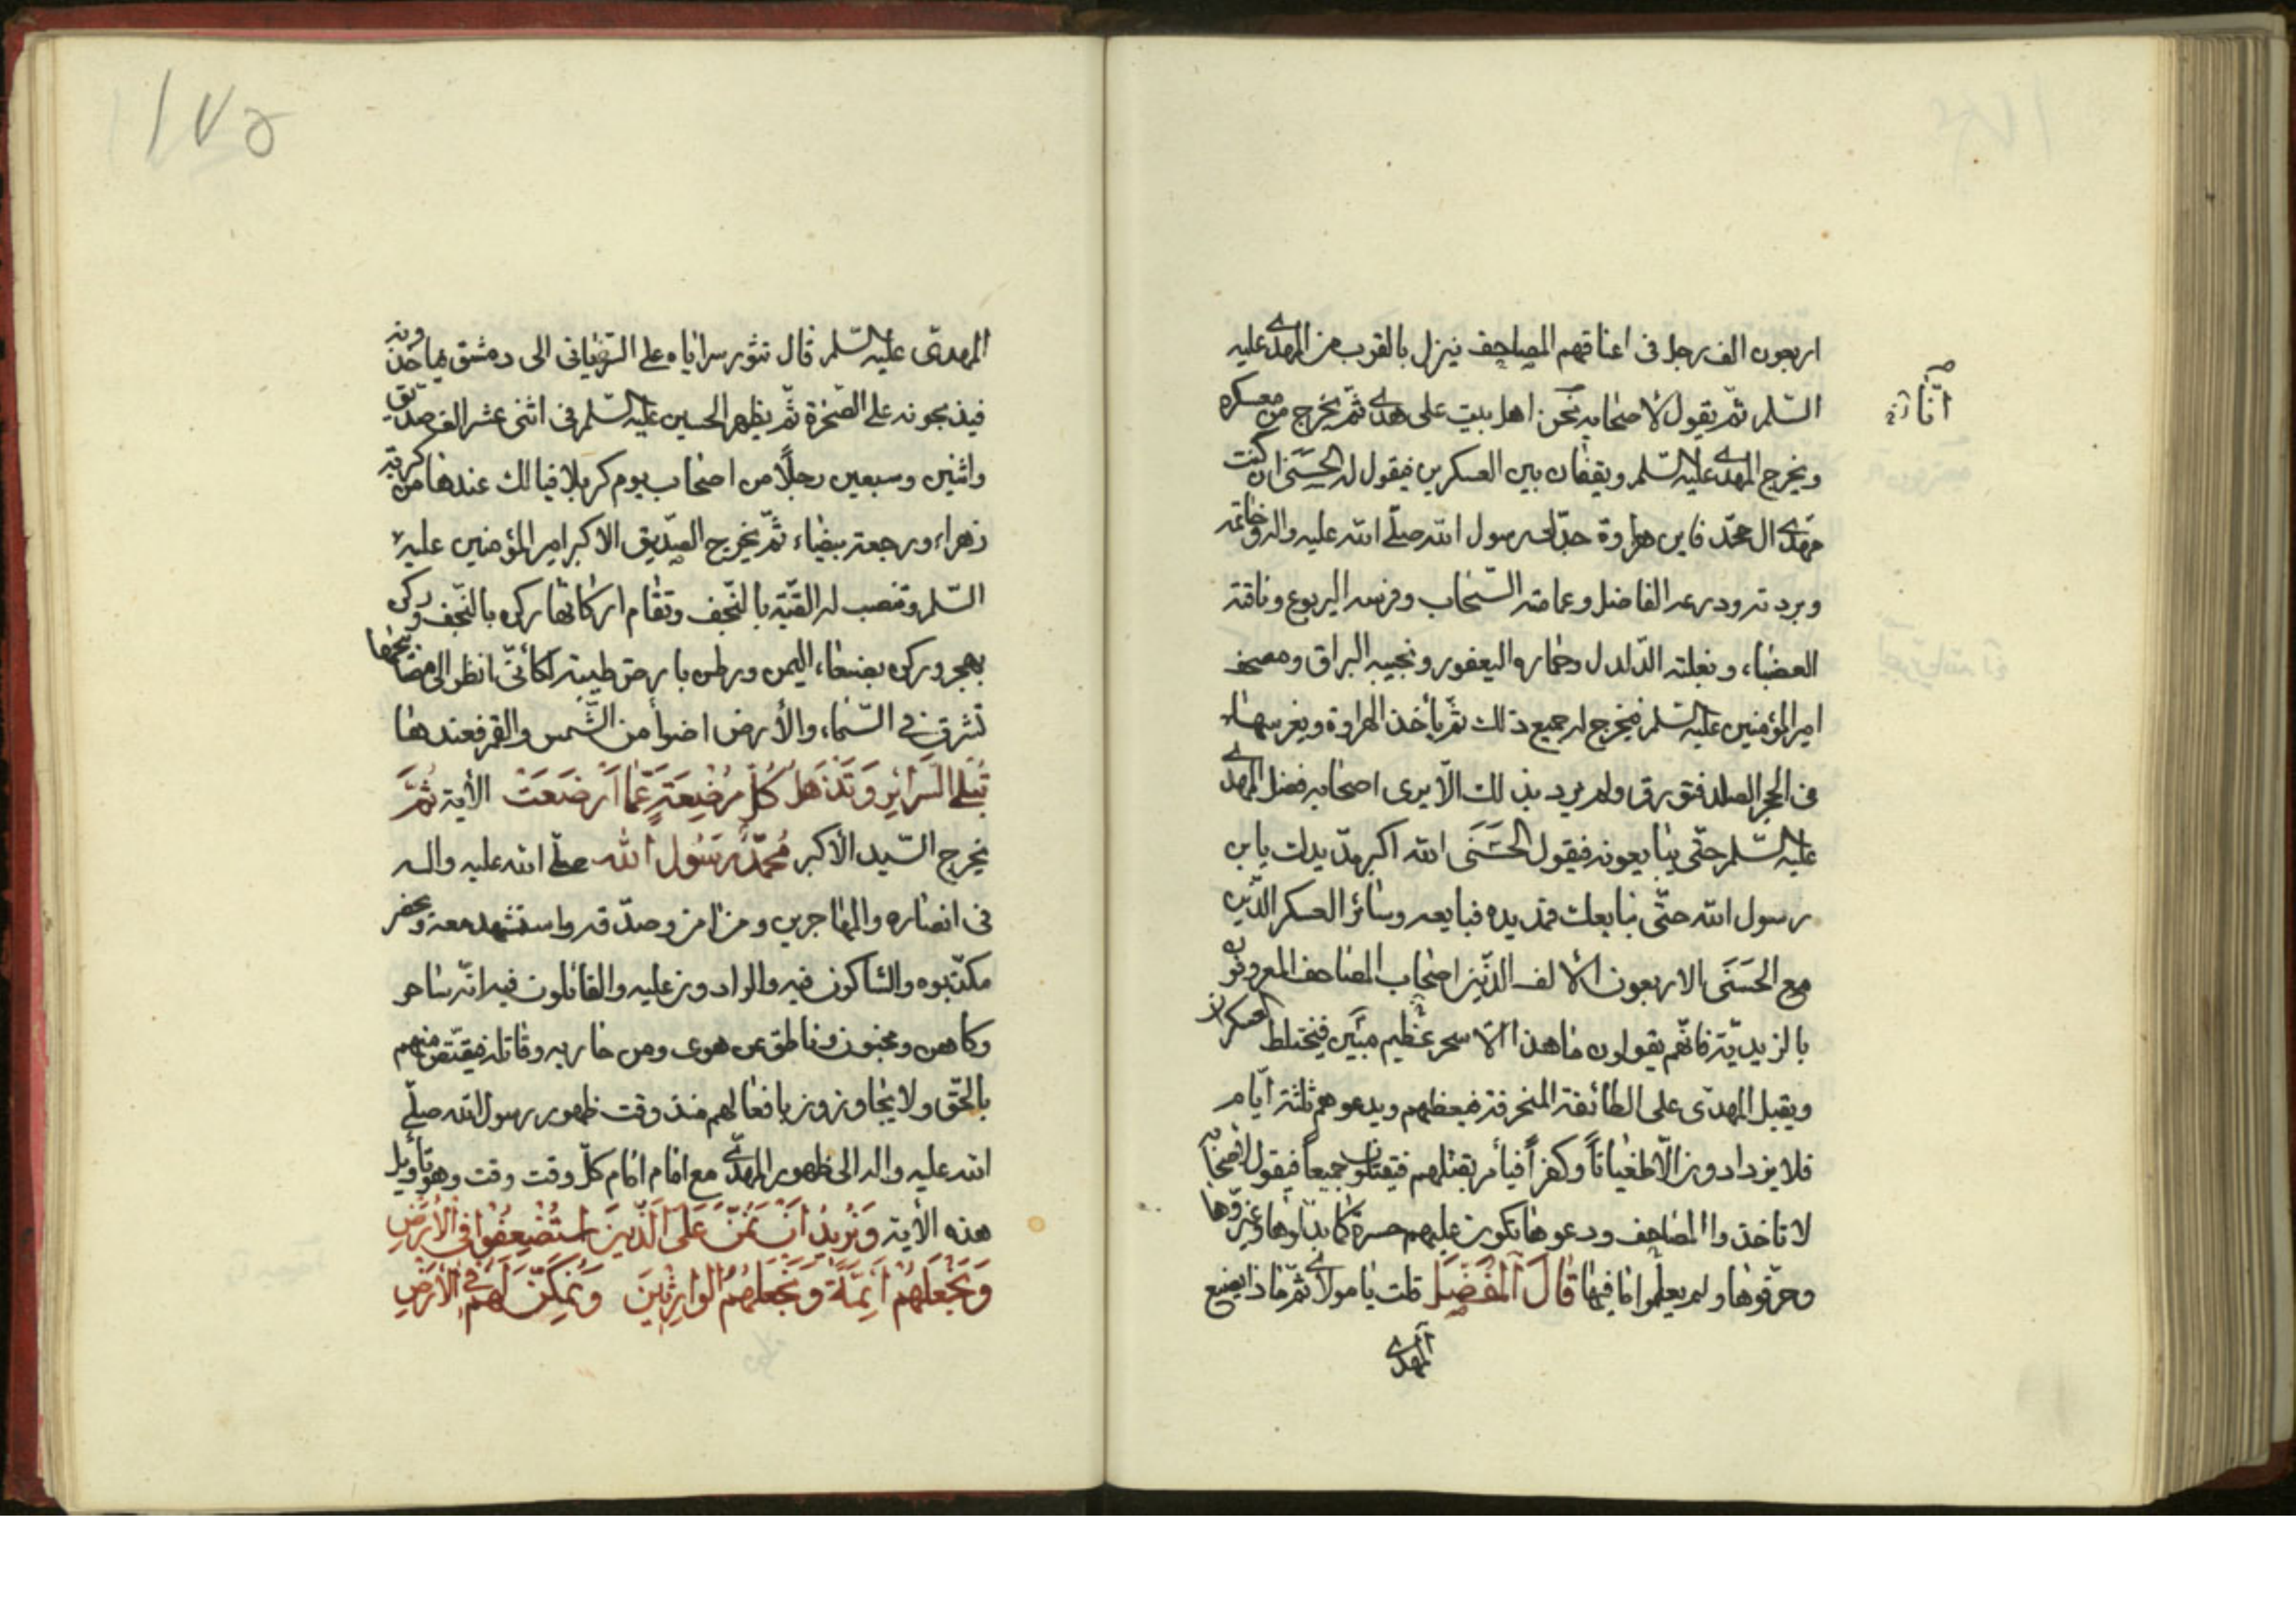 اربعون الف رجل فى اعناقهم المصاحف ينزل بالقرب من المهدى عليه
السّلم ثم يقول لاصحابه نحن اهل بيت على هدى ثمّ يخرج من معسكره
ويخرج المهدى عليه السّلم ويقفان بين العسكرين فيقول له الحسنى ان كنت
مهدى ال محمّد فاين هراوة جدّك رسول الله صلّى الله عليه واله وخاتمه
وبردته ودرعه الفاضل وعمامته السّحاب وفرسه اليربوع وناقته
العضباء، وبغلته الدّلدل وحماره اليعفور ونجيبه البراق ومصحف
امير المؤمنين عليه السّلم فيخرج له جميع ذلك ثمّ يأخذ الهراوة ويغرسها
فى الحجر الصلد فتورق ولم يرد بذلك الّا يرى اصحابه فضل المهدى
عليه السّلم حتّى يبايعونه فيقول الحَسَنَى الله اكبر مدّ يدك يابن
رسول الله حتّى نبايعك فمد يده فبايعه وسائر العسكر الّذين
مع الحَسَنَى الا اربعون الالف الذّين اصحاب المصاحف المعروفون
بالزيديّة فانّهم يقولون ما هذا الّا سحر عظيم مبيّن فيختلط العسكران
ويقبل المهدّى على الطائفة المنحرفة فيعظهم ويدعوهم ثلثة ايّام
فلا يزدادون الّا طغياناً وكفراً فيأمر بقتلهم فيقتلون جميعاً فيقول لاصحابه
لا تاخذوا المصاحف ودعوها تكون عليهم حسرة كما بدّلوها وغيّروها
وحرّفوها ولم يعلموا ما فيها قَالَ المُفَضَّل قلت يا مولاى ثمّ ماذا يصنع
المهدى
انّا
المهدىّ عليه السّلم قال تثور سراياه على السّفيانى الى دمشق فياخذونه
فيذبحونه على الصّخرة ثمّ يظهر الحسين عليه السّلم فى اثنى عشر الف صدّيق
واثنين وسبعين رجلًا من اصحاب يوم كربلا فيا لك عندها من كرة
زهراء ورجعة بيضاء ثمّ يخرج الصّدّيق الاكبر امير المؤمنين عليه
السّلم وتنصب له القبّة بالنّجف وتقام اركانها ركن بالنّجف وركن
بهجر وركن بصنعاء اليمن وركن بارض طيبة لكأنّى انظر الى مصابيحها
تشرق فى السّماء والأرض اضوأ من الشّمس والقمر فعندها
تُبْلَى السَّرَائِرُ وَتَذْهَلُ كُلُّ مُرْضِعَةٍ عَمَّا أَرْضَعَتْ الأية ثُمَّ
يخرج السّيد الأكبر مُحَمَّدٌ رَسُولُ الله صلّى الله عليه واله
فى انصاره والمهاجرين ومن امن وصدّقه واستشهد معه ويحضر
مكذّبوه والشاكون فيه والرادون عليه والقائلون فيه انّه ساحر
وكاهن ومجنون وناطق عن هوى ومن حاربه وقاتله فيقتصّ منهم
بالحقّ ولا يجاوزون بافعالهم منذ وقت ظهور رسول الله صلّى
الله عليه واله الى ظهور المهدّى مع امام امام كلّ وقت وقت وهو تأويل
هذه الأية وَنُرِيدُ أَنْ نَمُنَّ عَلَى الَّذِينَ اسْتُضْعِفُوا فِى الأَرْضِ
وَنَجْعَلَهُمْ أَئِمَّةً وَنَجْعَلَهُمُ الوَارِثِينَ وَنُمَكِّنَ لَهُمْ فِى الأَرْضِ
۱۷۵